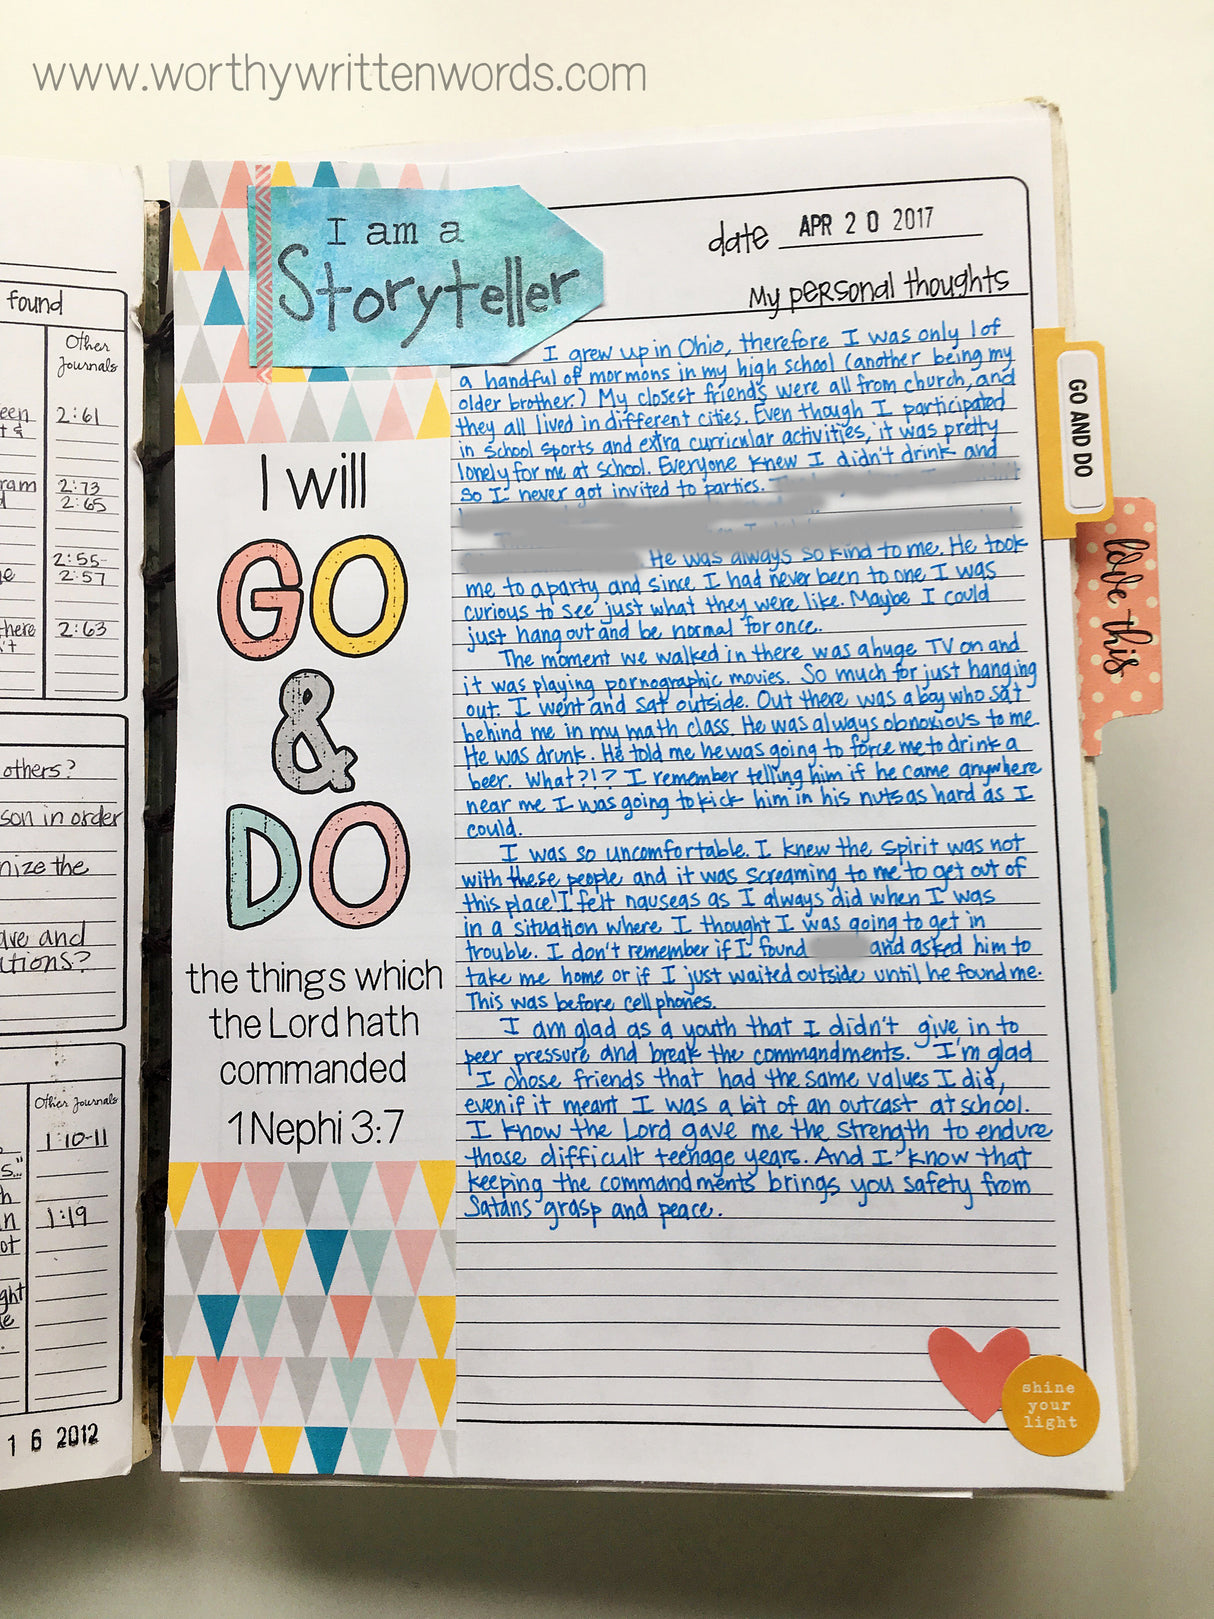 www.worthywrittenwords.com
found
Other
Journals
een
2:61
t &
ram
2:73
d
2:65
2:55-
e
2:57
there
2:63
't
others?
son in order
nize the
ave and
utions?
Other Journals
1:10-11
s..."
h
n
1:19
ot
ght
e
1 6 2012
I am a
Storyteller
I will
GO
&
DO
the things which
the Lord hath
commanded
1 Nephi 3:7
date APR 2 0 2017
My personal thoughts
I grew up in Ohio, therefore I was only 1 of
a handful of mormons in my high school (another being my
older brother.) My closest friends were all from church, and
they all lived in different cities. Even though I participated
in school sports and extra curricular activities, it was pretty
lonely for me at school. Everyone knew I didn't drink and
so I never got invited to parties.
He was always so kind to me. He took
me to a party and since I had never been to one I was
curious to see just what they were like. Maybe I could
just hang out and be normal for once.
The moment we walked in there was a huge TV on and
it was playing pornographic movies. So much for just hanging
out. I went and sat outside. Out there was a boy who sat
behind me in my math class. He was always obnoxious to me.
He was drunk. He told me he was going to force me to drink a
beer. What?!? I remember telling him if he came anywhere
near me I was going to kick him in his nuts as hard as I
could.
I was so uncomfortable. I knew the spirit was not
with these people and it was screaming to me to get out of
this place! I felt nauseas as I always did when I was
in a situation where I thought I was going to get in
trouble. I don't remember if I found and asked him to
take me home or if I just waited outside until he found me.
This was before cell phones.
I am glad as a youth that I didn't give in to
peer pressure and break the commandments. I'm glad
I chose friends that had the same values I did,
even if it meant I was a bit of an outcast at school.
I know the Lord gave me the strength to endure
those difficult teenage years. And I know that
keeping the commandments brings you safety from
Satans grasp and peace.
GO AND DO
love this
shine
your
light